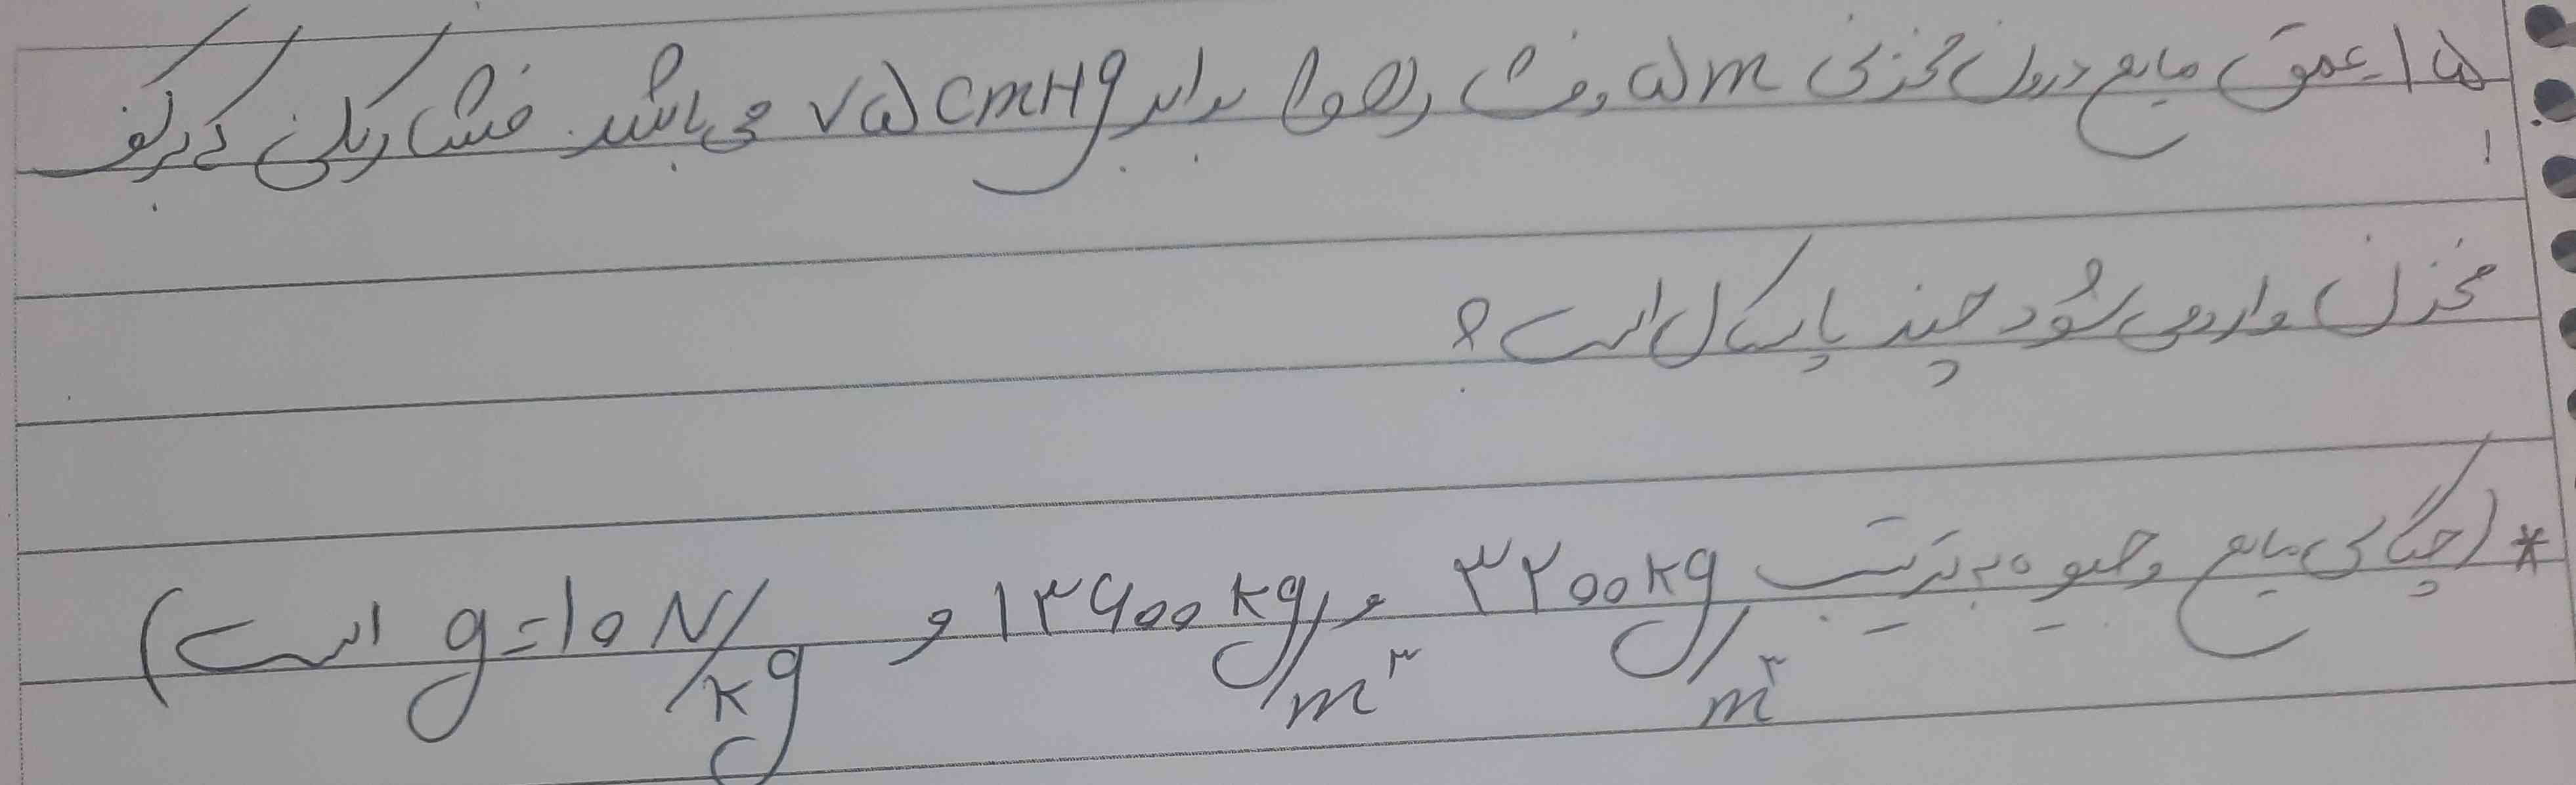 ۱۵- عمق مایع درون مخزنی ۵m و فشار هوا برابر ۷۵ cmHg می باشد. فشار کلی که بر کف
مخزن وارد می شود چند پاسکال است؟
* (چگالی مایع و جیوه به ترتیب ۳۲۰۰ kg/m³ و ۱۳۶۰۰ kg/m³ و g=۱۰ N/kg است)